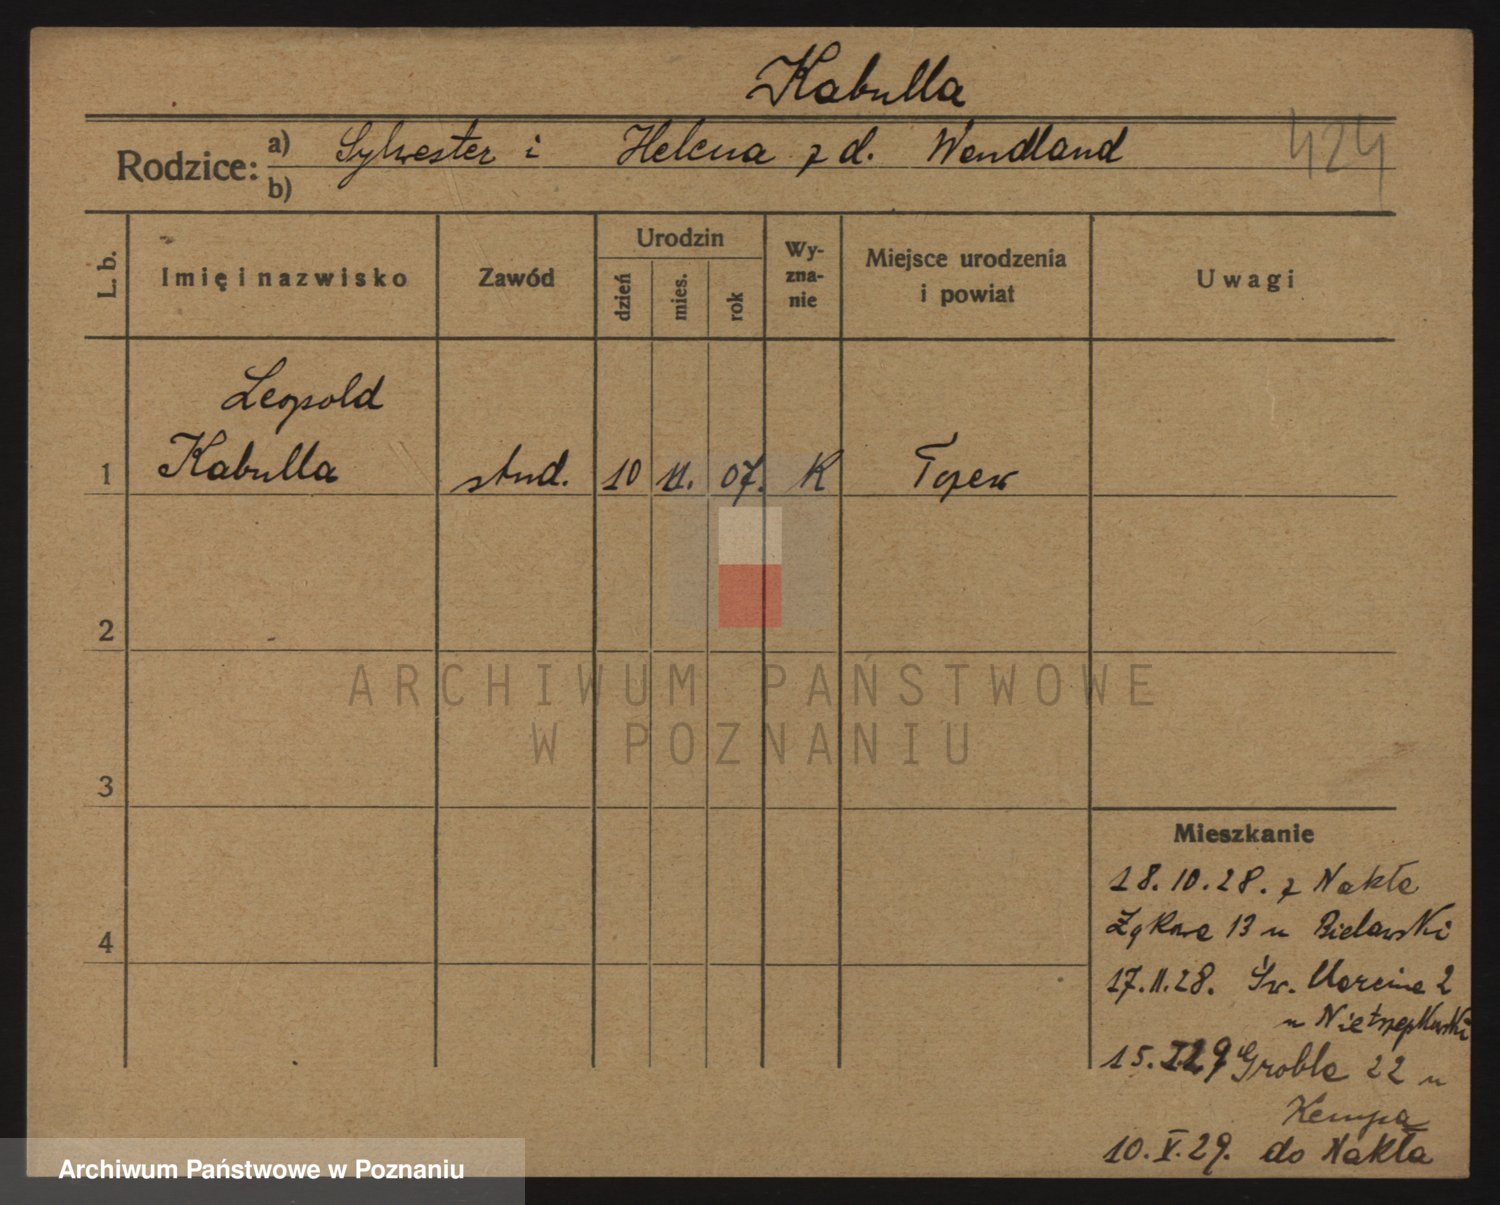 Kabulla
Rodzice: a) Sylwester i Helena z d. Wendland 424
b)
L. b. Imię i nazwisko Zawód Urodzin dzień mies. rok Wy-zna-nie Miejsce urodzenia i powiat Uwagi
Leopold
1 Kabulla stud. 10 11. 07. K
2
ARCHIWUM PAŃSTWOWE
W POZNANIU
3
Mieszkanie
18.10.28. z Nakła
13 u Bielawski
4
17.11.28. Św. Marcina 2
u
15. I.29 Grobla 22 u
Kempa
10.V.29. do Nakła
Archiwum Państwowe w Poznaniu